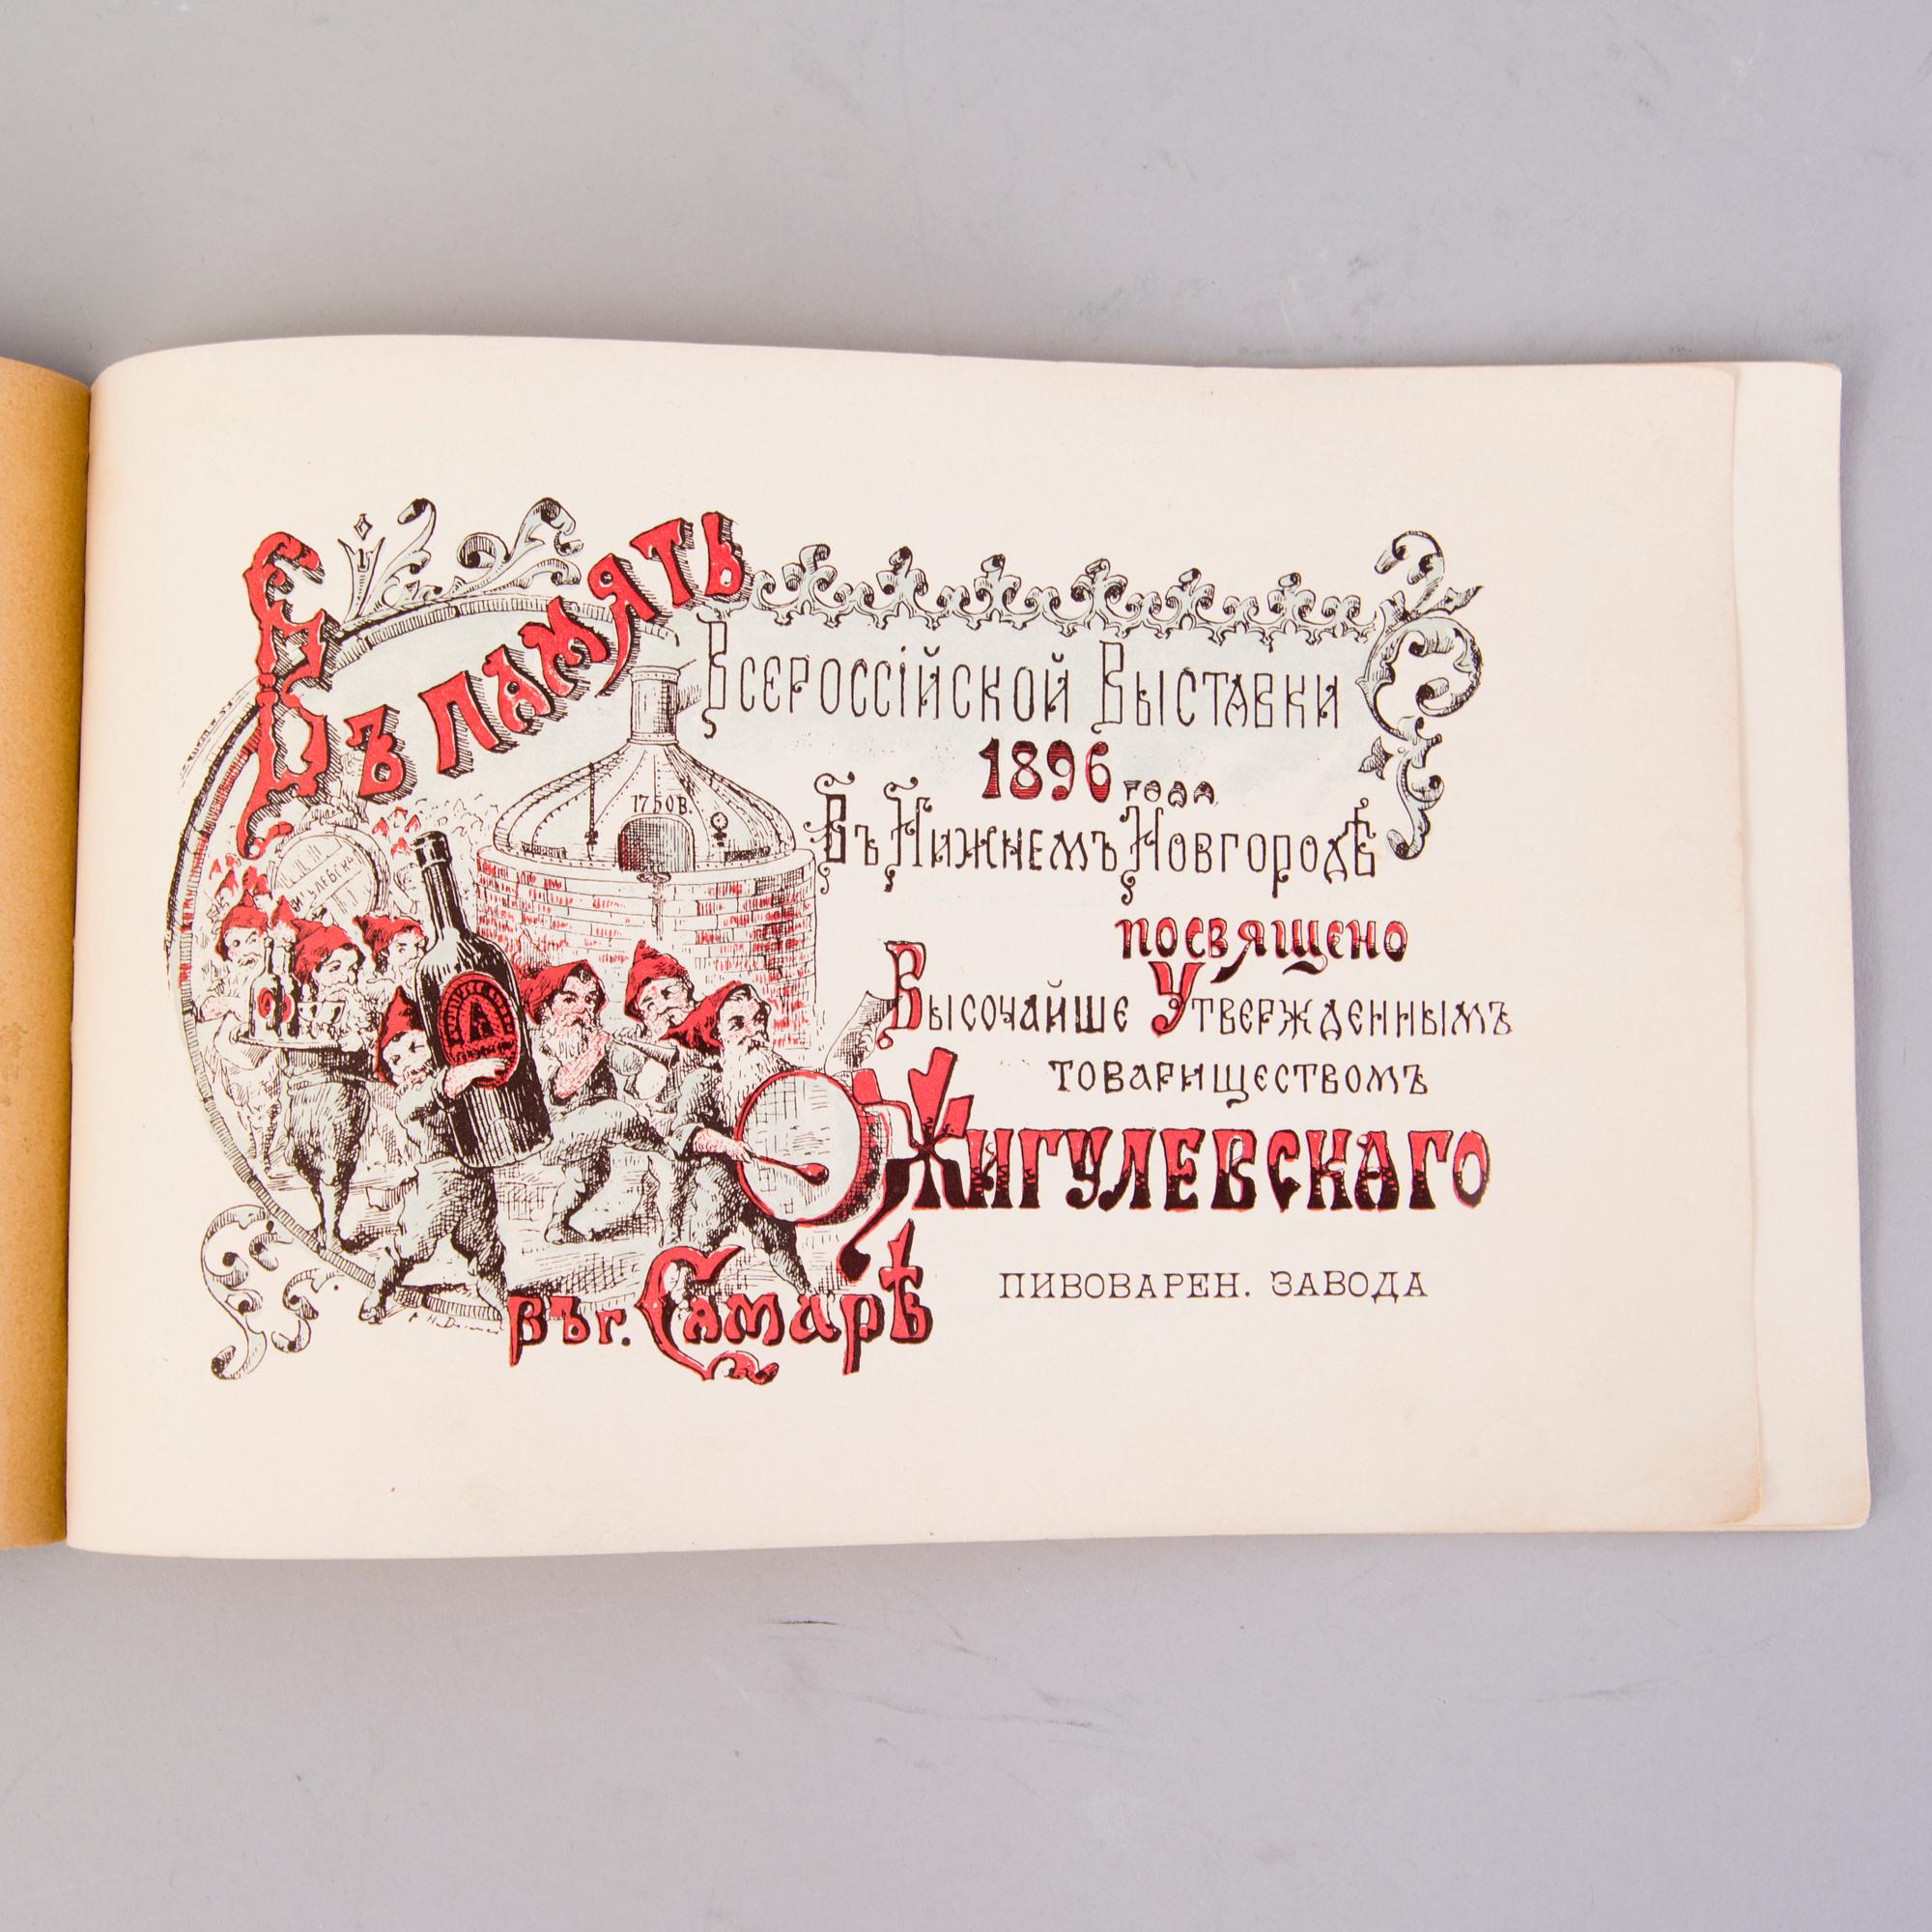 Въ память
Всероссійской Выставки
1896 года
Въ Нижнемъ Новгородѣ
посвящено
Высочайше Утвержденнымъ
товариществомъ
Жигулевскаго
ПИВОВАРЕН. ЗАВОДА
въ г. Самарѣ
1750 В.